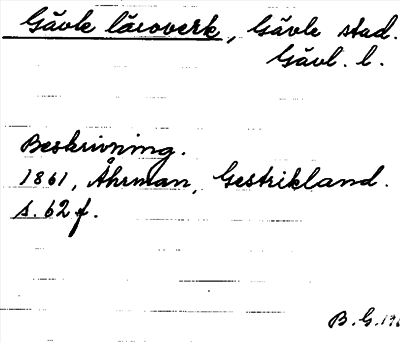 Gävle läroverk, Gävle stad.
Gävl. l.
Beskrivning.
1861, Åhrman, Gestrikland.
s. 62 f.
B. G. 196